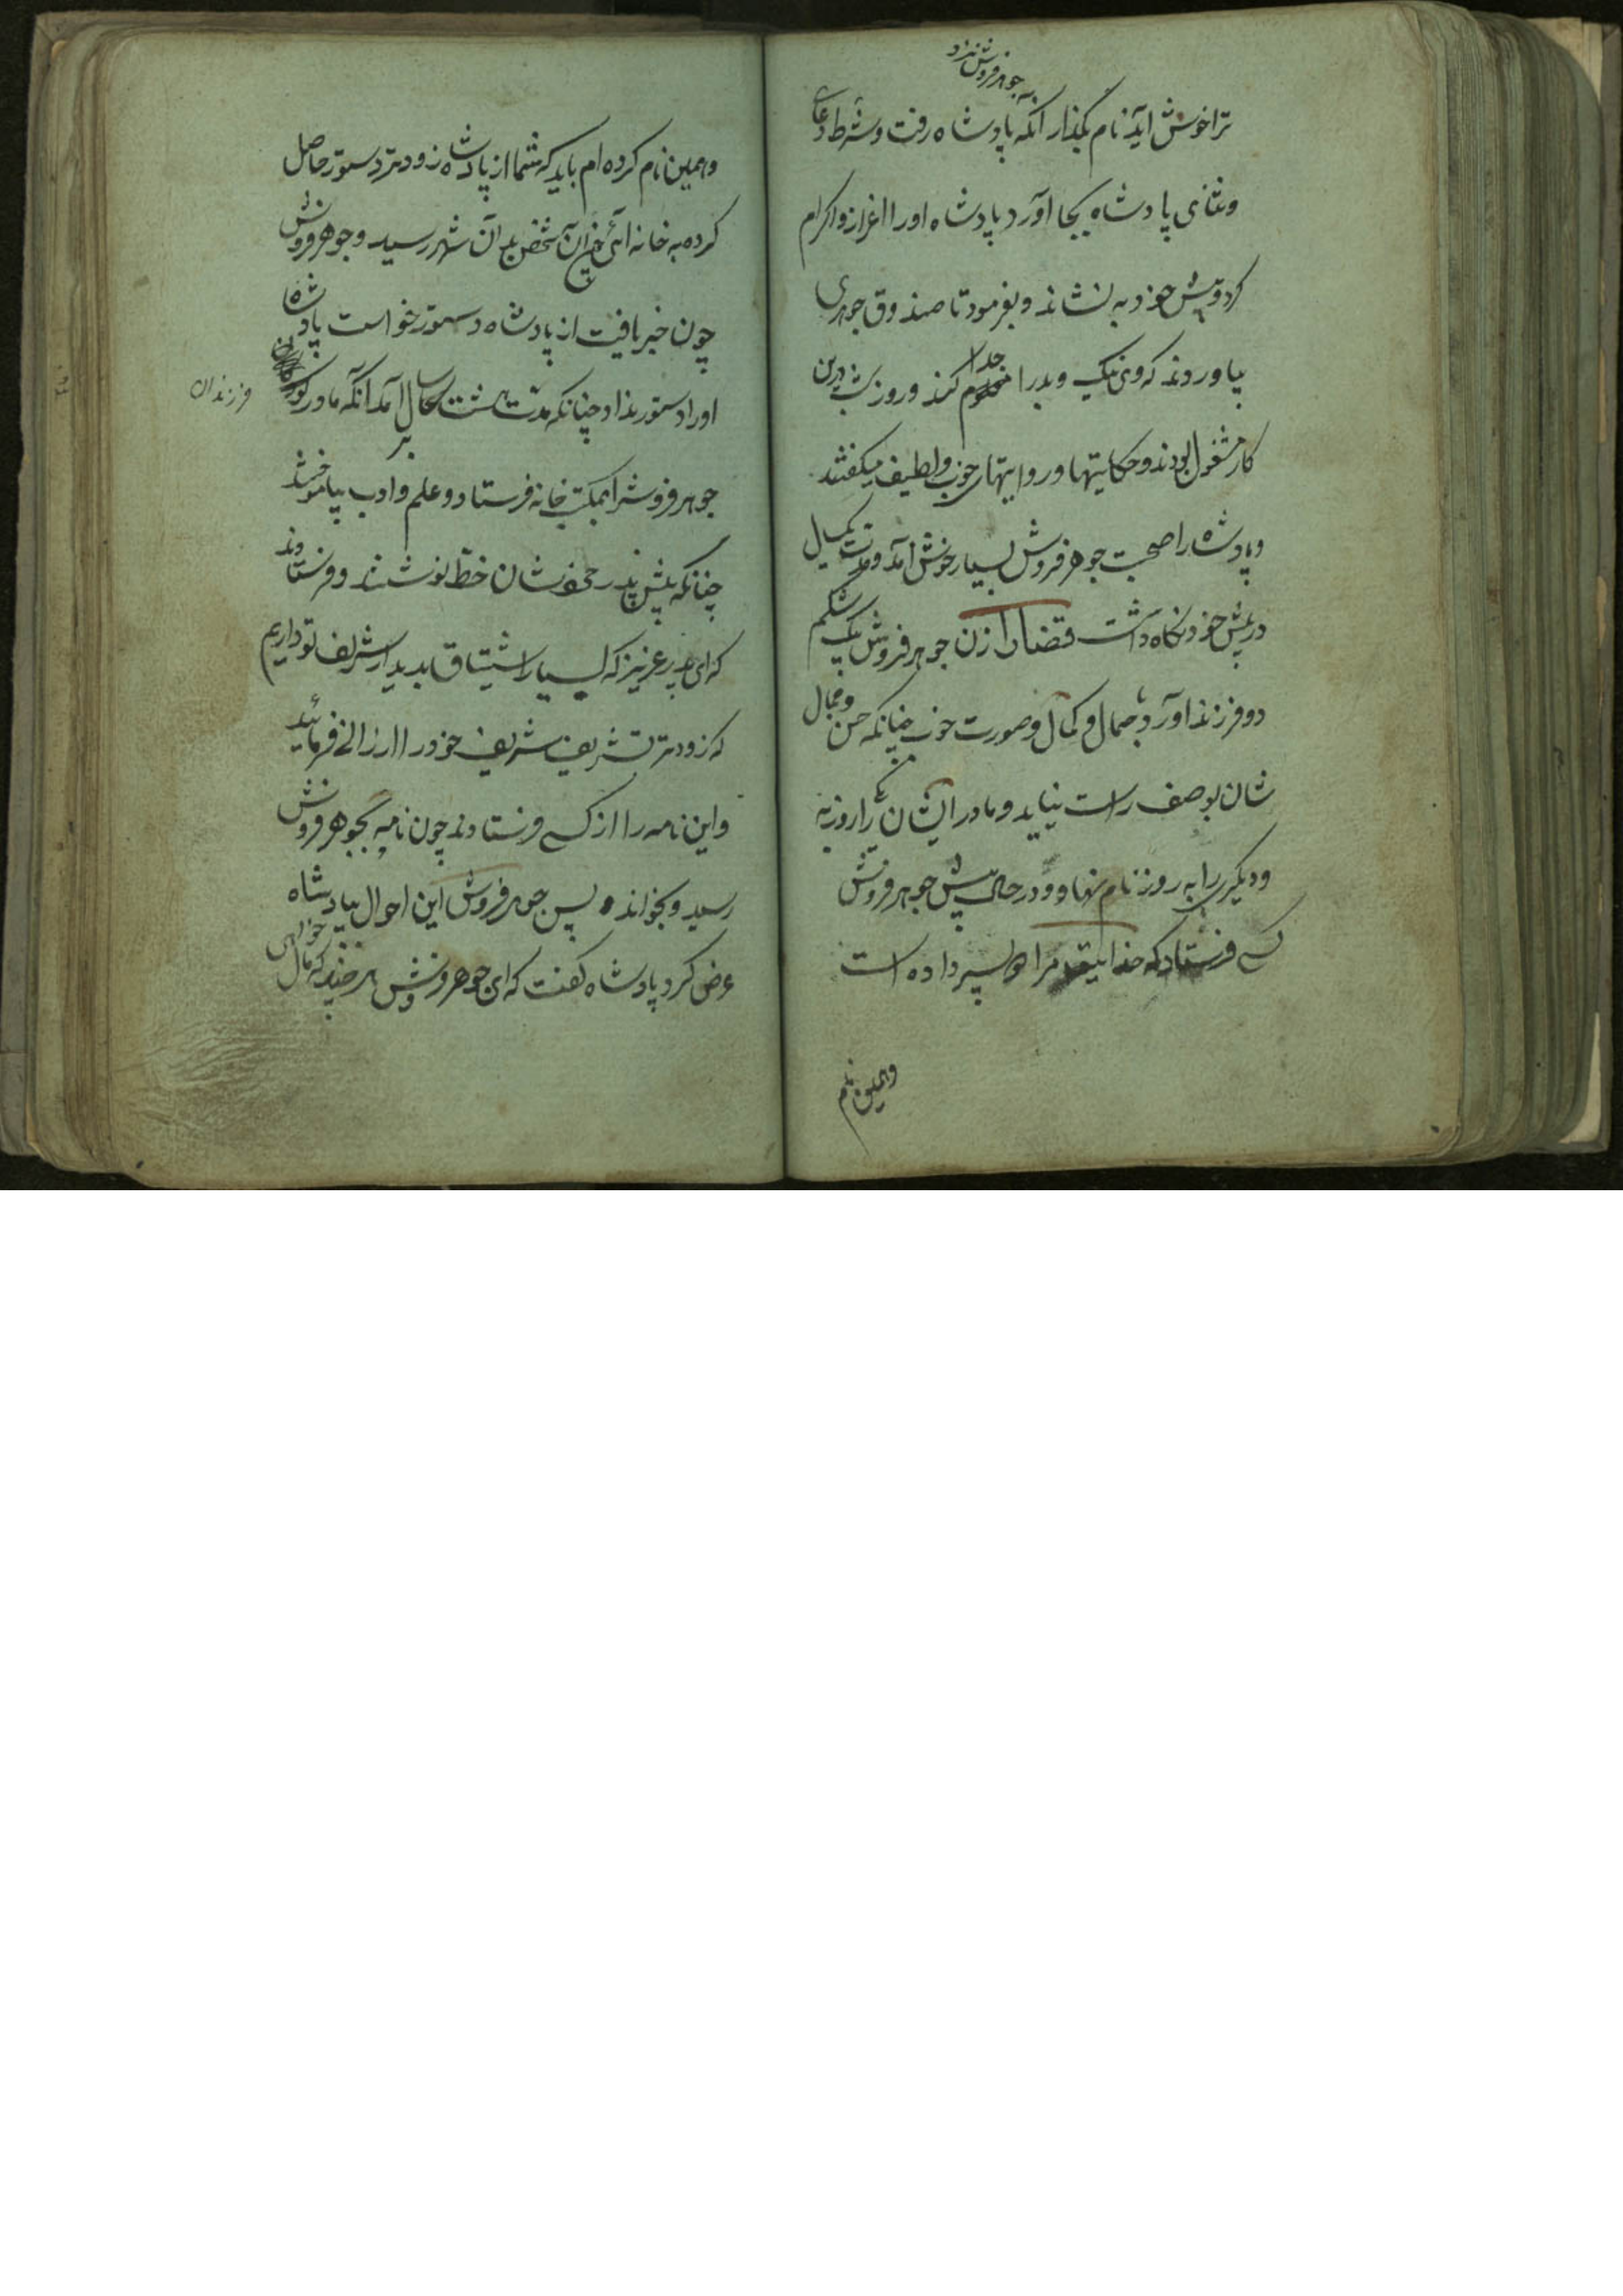 جوهرفروش نزد
ترا خوش آید نام بگذار آنگه پادشاه رفت و شرط دعای
و ثنای پادشاه بجا آورد پادشاه او را اعزاز و اکرام
کرد و پیش خود به نشاند و بفرمود تا صندوق جوهری
بیاوردند که وی نیک و بد را جدا کند و روز و شب درین
کار مشغول بودند و حکایتها و روایتهای خوب و لطیف میکفتند
و پادشاه را صحبت جوهرفروش بسیار خوش آمد و مدت یکسال
در پیش خود نگاه داشت قضا را زن جوهرفروش بیک شکم
دو فرزند آورد باجمال و کمال و صورت خوب چنانکه حسن و جمال
شان بوصف راست نیاید و مادر ایشان یکی را روزبه
و دیگری را به روز نام نهاد و در حال پیش جوهرفروش
کسی فرستاد که خدایتعالی مرا دو پسر داده است
وهمین نام
وهمین نام کرده ام باید که شما از پادشاه زودتر دستور حاصل
کرده به خانه آئی آن شخص بر آن شهر رسید و جوهرفروش
چون خبر یافت از پادشاه دستور خواست پادشاه
او را دستور نداد چنانکه مدت هشت سال برآمد آنگه مادر
فرزندان
جوهرفروش را بمکتب خانه فرستاد و علم و ادب بیاموختند
چنانکه پیش پدر خود شان خط نوشتند و فرستادند
که ای پدر عزیز که بسیار اشتیاق بدیدار شریف تو داریم
که زودتر تشریف شریف خود را ارزانی فرمائید
و این نامه را از کسی فرستادند چون نامه بجوهرفروش
رسید و بخواند پس جوهرفروش این احوال بپادشاه
عرض کرد پادشاه کفت که ای جوهرفروش هر چند که مال خواهی